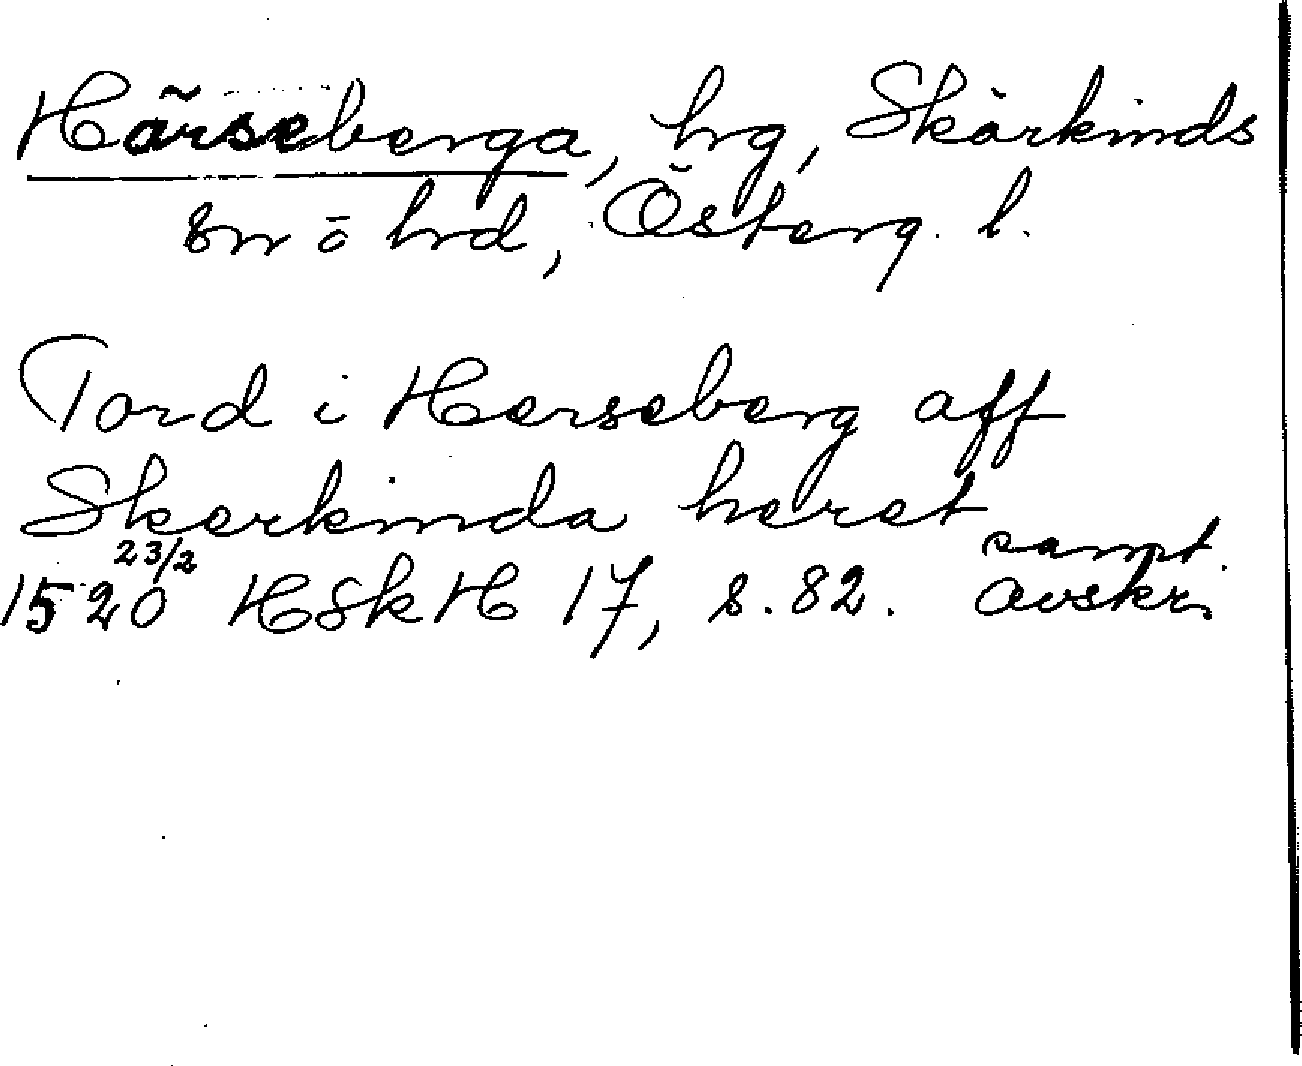 Härseberga, hrg, Skärkinds
sn ō hrd, Österg. l.
Tord i Herseberg aff
Skerkinda heret
1520 23/2 HSkH 17, s. 82. samt. avskr.